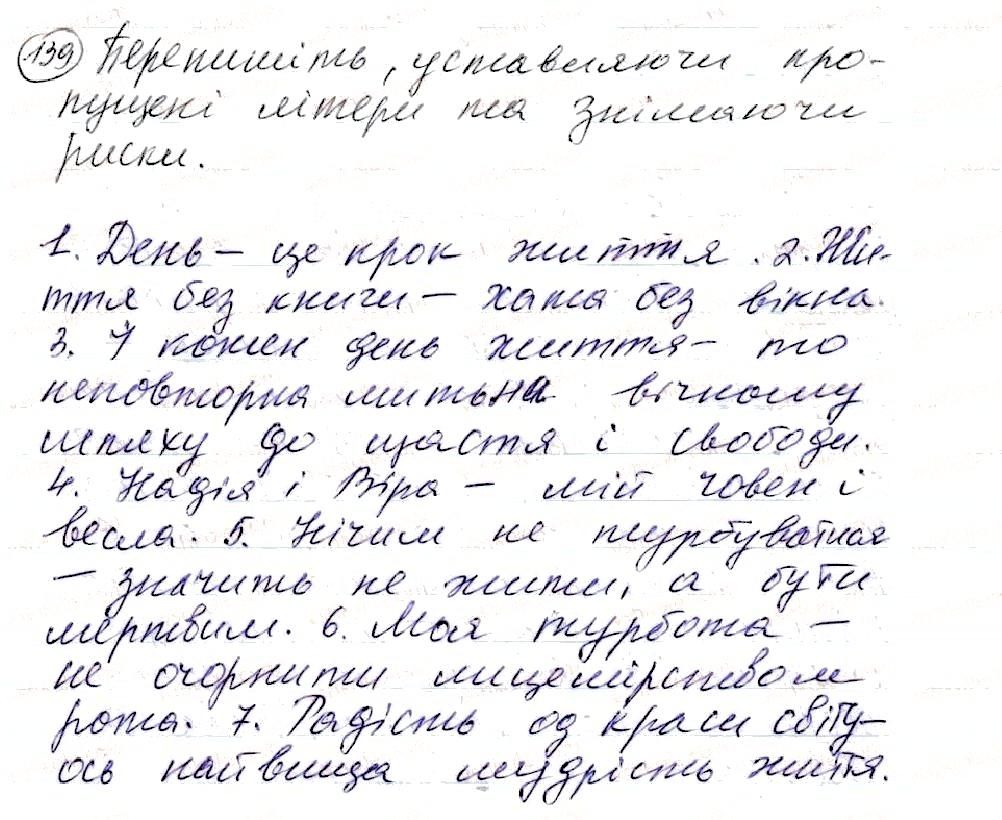 139 Перепишіть, уставляючи про-
пущені літери та знімаючи
риски.
1. День – це крок життя. 2. Жи-
ття без книги – хата без вікна.
3. У кожен день життя – то
неповторна мить на вічному
шляху до щастя і свободи.
4. Надія і Віра – мій човен і
весла. 5. Нічим не турбуватися
– значить не жити, а бути
мертвим. 6. Моя турбота –
не очорнити лицемірством
рота. 7. Радість од краси світу –
ось найвища мудрість життя.